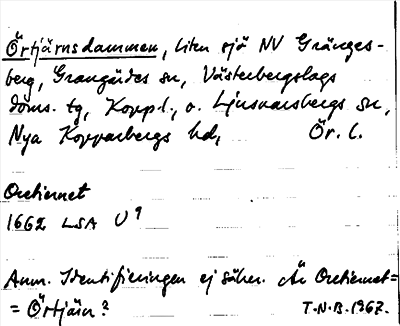 Örtjärnsdammen, liten sjö NV Gränges-
berg, Grangärdes sn, Västerbergslags
doms. tg, Koppl., o. Ljusnarsbergs sn,
Nya Kopparbergs hd, Ör. l.
Oretiernet
1662 LSA U⁹
Anm. Identifieringen ej säker. Är Oretiernet=
= Örtjärn? T.N.B. 1967.